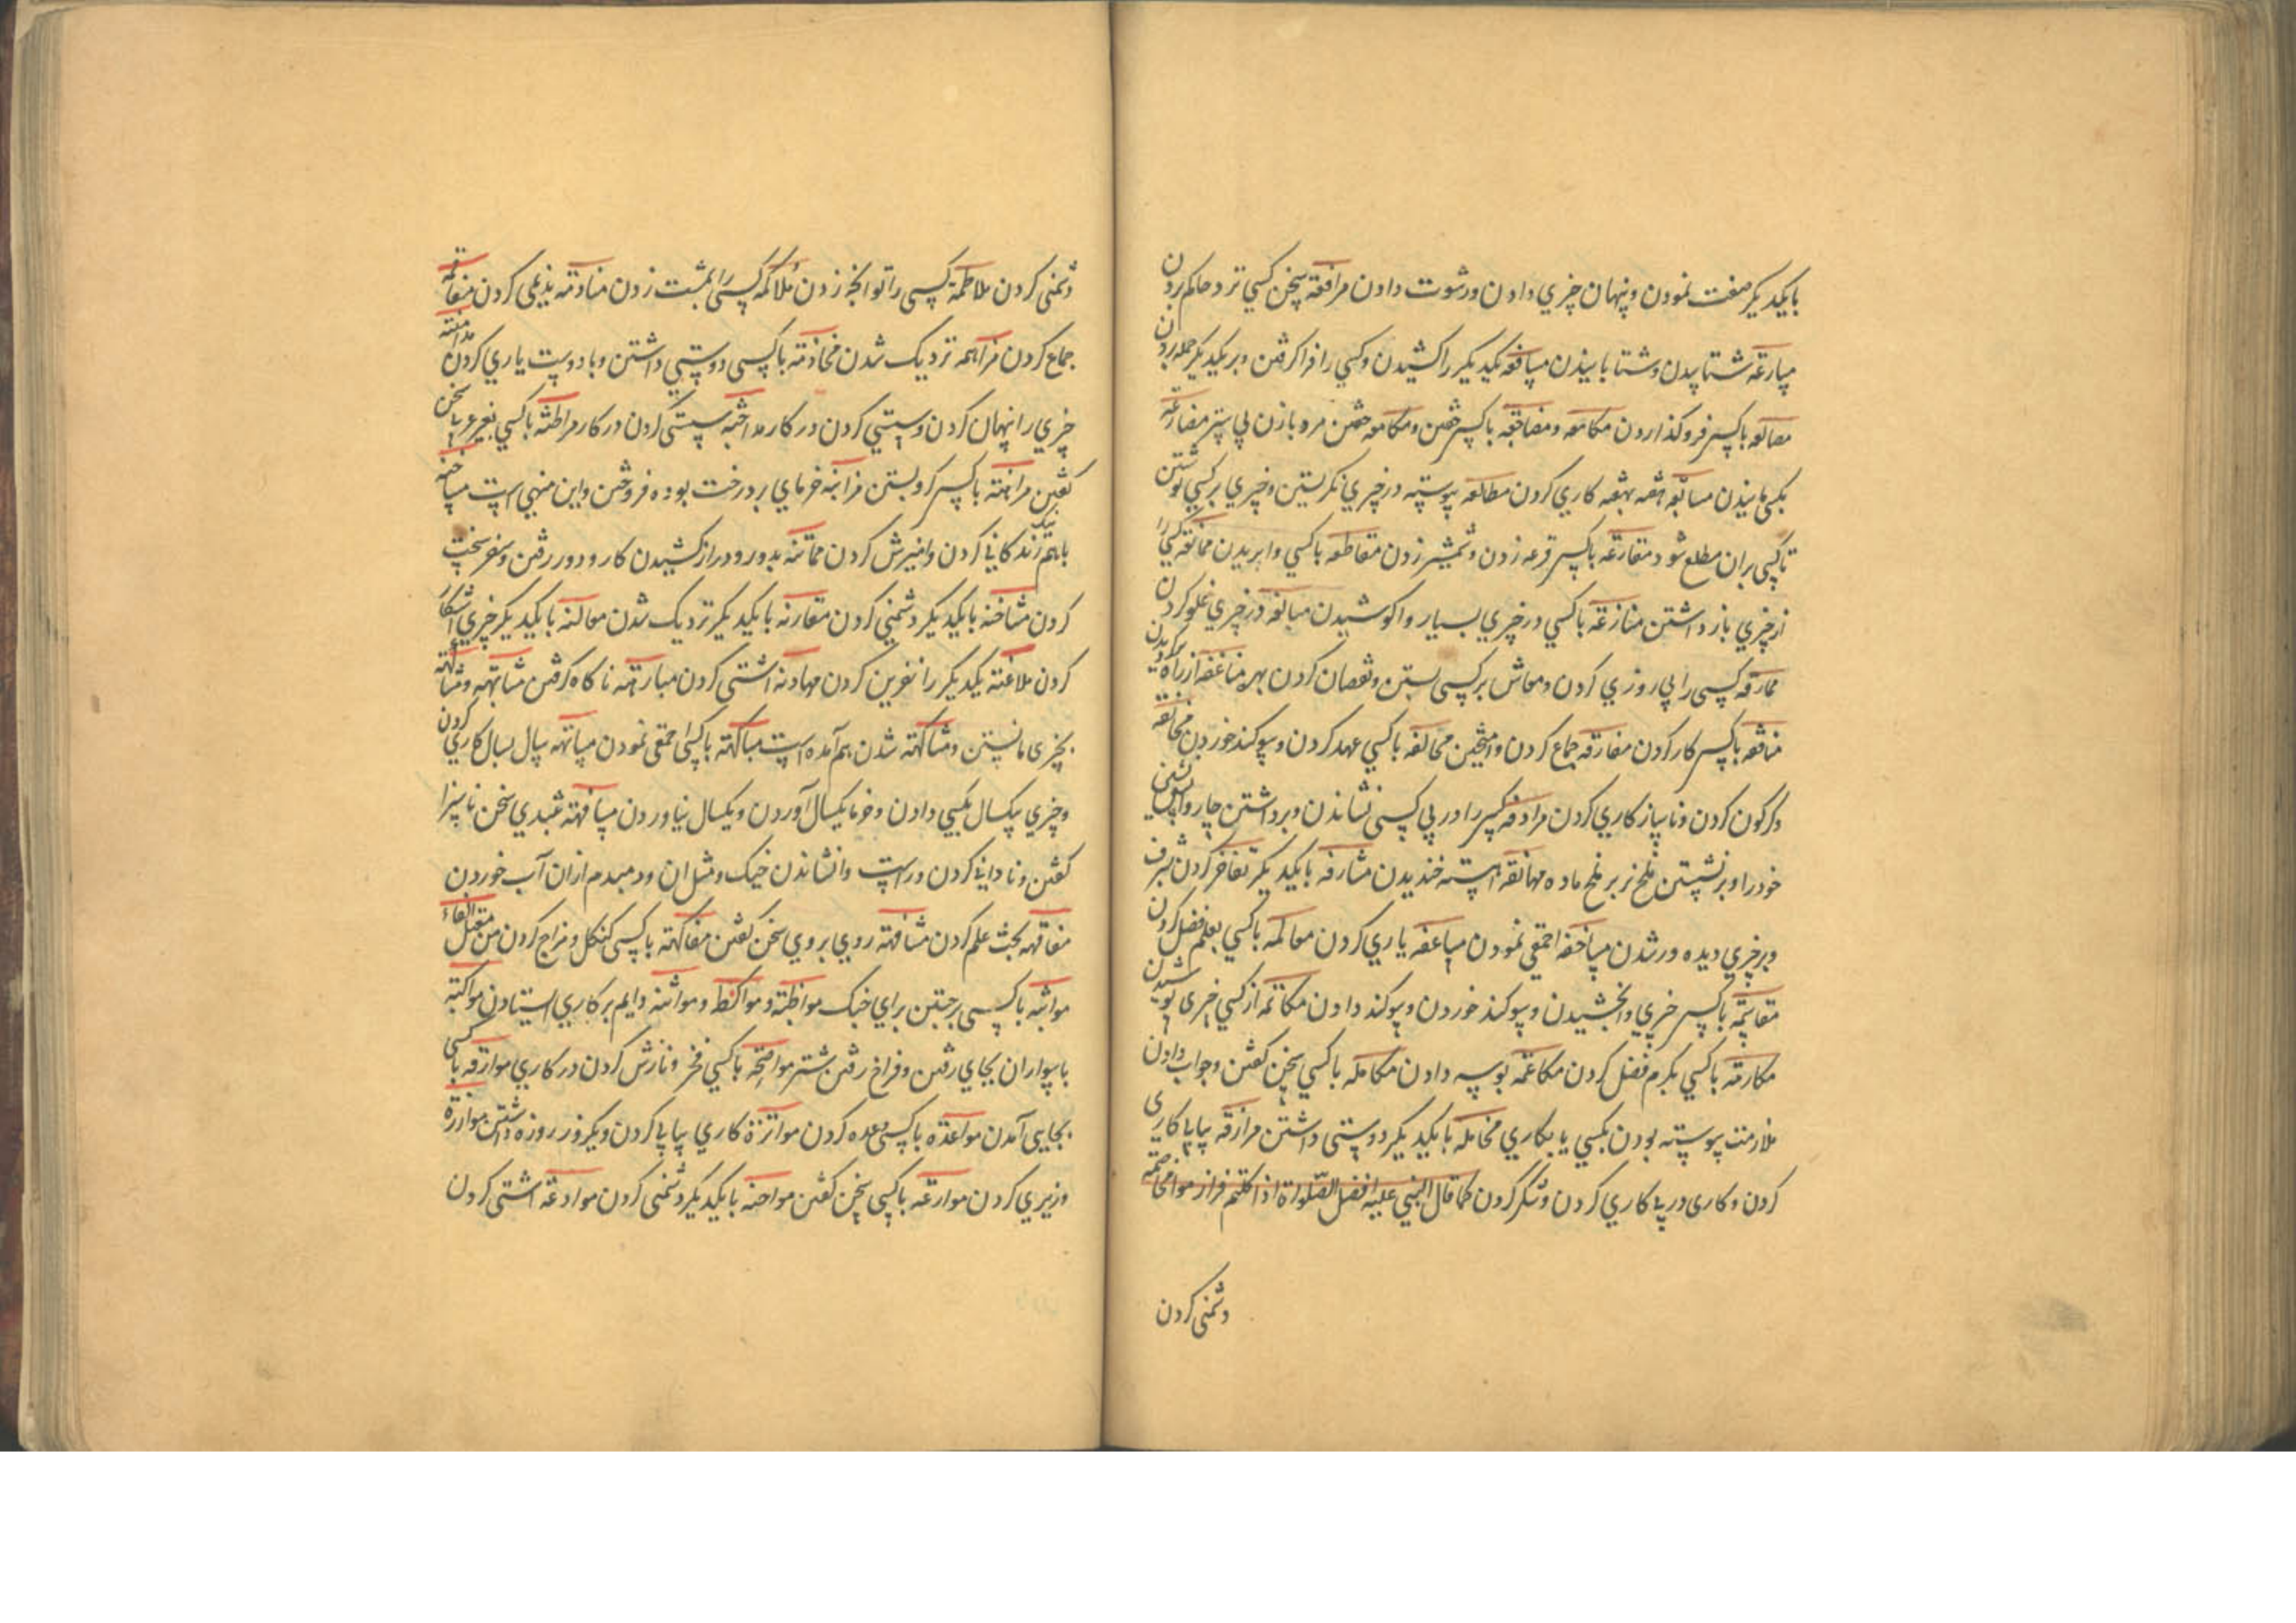 بایکدیکر صنعت نمودن و پنهان چیزي دادن و رشوت دادن مرافعة سخن کسي نزد حاکم بردن
مسارعة شتابیدن و شتابانیدن مسافعة یکدیکر را کشیدن و کسي را فراکرفتن و بر یکدیکر حمله بردن
مصالعة باکسی فروکذاردن مکامعة ومضاجعة باکسی خفتن ومکامعة خفتن مرد بازن بي ستر مضارعة
بکسی مانیدن مسابعة هفته بهفته کاري کردن مطالعة پیوسته در چیزي نکریستن و چیزي برکسي نوشتن
تاکسی بران مطلع شود مقارعة باکسی قرعه زدن و شمشیر زدن مقاطعة باکسي وابریدن ممانعة کسي را
از چیزي بازداشتن منازعة باکسي در چیزي بسیار واکوشیدن مبالغة در چیزي غلو کردن
محارفة کسی را بي روزي کردن و معاش برکسی بستن و نقصان کردن بهره از راه
باکسی کار کردن مقارفة جماع کردن و آمیختن محالفة باکسي عهد کردن و سوکند خوردن مخالفة
دکرکون کردن و ناسازکاري کردن مرادفة کسی را در پي کسی نشاندن و برداشتن چاروا پس نشین
خود را و برنشستن ملخ نر بر ملخ ماده مهانفة آهسته خندیدن مشارفة بایکدیکر تفاخر کردن بشرف
و بر چیزي دیده ور شدن مساخفة احمقي نمودن مساعفة یاري کردن معالمة باکسي بعلم فضل کردن
مقاسمة باکسی چیزي وابخشیدن و سوکند خوردن و سوکند دادن مکاتمة از کسي چیزي پوشیدن
مکارمة باکسي بکرم فضل کردن مکاعمة بوسه دادن مکالمة باکسي سخن کفتن و جواب دادن
ملازمت پیوسته بودن بکسي یا بکاري مخالمة بایکدیکر دوستی داشتن مرازمة پیاپی کاري
کردن و کاري در پي کاري کردن و شکر کردن کما قال النبي علیه افضل الصلواة اذا اکلتم فرازموا مخاصمة
دشمني کردن
دشمنی کردن ملاطمة کسی را توانجه زدن ملاکمة کسی را بمشت زدن منادمة ندیمی کردن مفاقمة
جماع کردن مزاهمة نزدیک شدن مخادنة باکسی دوستي داشتن و با دوست یاري کردن مداهنة
چیزي را پنهان کردن و سستي کردن در کار مداجنة سستي کردن در کار مراطنة باکسي بغیر عربي سخن
کفتن مراهنة باکسی کرو بستن مزابنة خرماي بر درخت بوده فروختن و این منهي است مساخنة
باهم نیک زندکاني کردن و آمیزش کردن مماتنة بدور و دراز کشیدن کار و دور رفتن و سفر سخت
کردن مشاحنة بایکدیکر دشمني کردن مقارنة بایکدیکر نزدیک شدن معالنة بایکدیکر چیزي آشکارا
کردن ملاعنة یکدیکر را نفرین کردن مهادنة آشتي کردن مباهتة ناکاه کرفتن مشابهة و مشاکهة
بچیزي مانستن و مشاکهة شدن بهم آمده است باکسی احمقي نمودن مسانهة سال بسال کاري کردن
و چیزي بکسال بکسي دادن و خرما یکسال آوردن و یکسال نیاوردن مسافهة سخن ناسزا
کفتن و ناداني کردن و راست وانشاندن خیک و مثل ان و دمبدم از ان آب خوردن
مفاقهة بحث علم کردن مشافهة روي بروي سخن کفتن مفاکهة باکسی و مزاح کردن من معتل الفاء
مواثبة باکسی برجستن براي جنک مواظبة و مواکظ و مواشة دایم بر کاري ایستادن مواکبة
با سواران بجاي رفتن و فراخ رفتن شتر مواضخة باکسي فخر و نازش کردن در کاري موازفة باکسی
بجایی آمدن مواعدة باکسی وعده کردن مواترة کاري پیاپي کردن و یکروز روزه داشتن موازرة
وزیري کردن موارعة باکسی سخن کفتن مواحنة بایکدیکر دشمنی کردن موادعة آشتي کردن